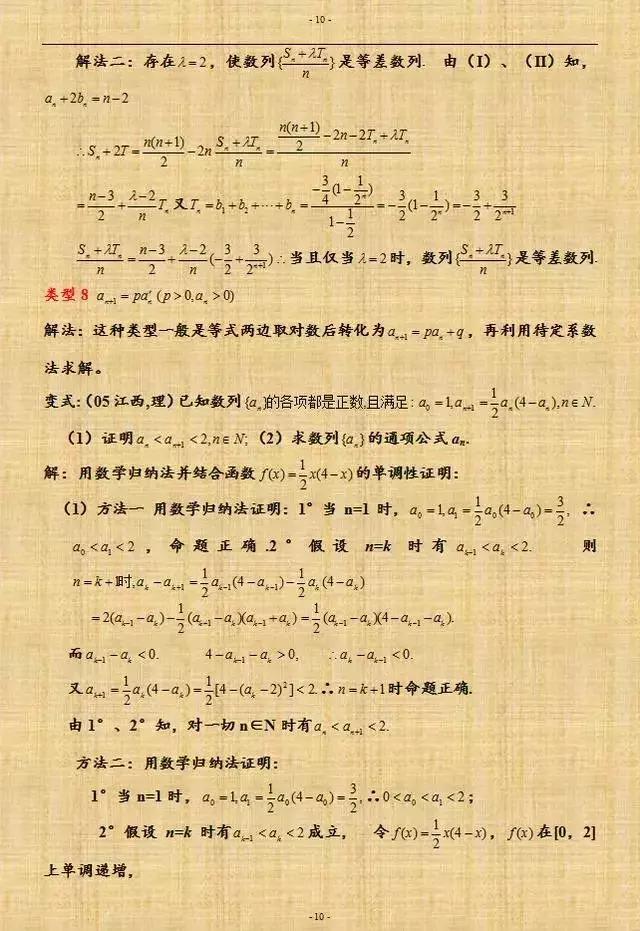 - 10 -
解法二：存在λ=2，使数列{(Sₙ+λTₙ)/n}是等差数列. 由（I）、（II）知，
aₙ+2bₙ=n-2
∴Sₙ+2T=n(n+1)/2-2n (Sₙ+λTₙ)/n=(n(n+1)/2-2n-2Tₙ+λTₙ)/n
=(n-3)/2+(λ-2)/n Tₙ 又Tₙ=b₁+b₂+⋯+bₙ=(-3/4(1-1/2ⁿ))/(1-1/2)=-3/2(1-1/2ⁿ)=-3/2+3/2ⁿ⁺¹
(Sₙ+λTₙ)/n=(n-3)/2+(λ-2)/n(-3/2+3/2ⁿ⁺¹)∴当且仅当λ=2时，数列{(Sₙ+λTₙ)/n}是等差数列.
类型8 aₙ₊₁=paₙʳ(p>0,aₙ>0)
解法：这种类型一般是等式两边取对数后转化为aₙ₊₁=paₙ+q，再利用待定系数
法求解。
变式:（05江西,理）已知数列{aₙ}的各项都是正数,且满足：a₀=1,aₙ₊₁=1/2aₙ(4-aₙ),n∈N.
（1）证明aₙ<aₙ₊₁<2,n∈N;（2）求数列{aₙ}的通项公式aₙ.
解：用数学归纳法并结合函数f(x)=1/2x(4-x)的单调性证明：
（1）方法一 用数学归纳法证明：1°当n=1时，a₀=1,a₁=1/2a₀(4-a₀)=3/2, ∴
a₀<a₁<2，命题正确.2°假设n=k时有aₖ₋₁<aₖ<2. 则
n=k+1时,aₖ-aₖ₊₁=1/2aₖ₋₁(4-aₖ₋₁)-1/2aₖ(4-aₖ)
=2(aₖ₋₁-aₖ)-1/2(aₖ₋₁-aₖ)(aₖ₋₁+aₖ)=1/2(aₖ₋₁-aₖ)(4-aₖ₋₁-aₖ).
而aₖ₋₁-aₖ<0. 4-aₖ₋₁-aₖ>0, ∴aₖ-aₖ₋₁<0.
又aₖ₊₁=1/2aₖ(4-aₖ)=1/2[4-(aₖ-2)²]<2.∴n=k+1时命题正确.
由1°、2°知，对一切n∈N时有aₙ<aₙ₊₁<2.
方法二：用数学归纳法证明：
1°当n=1时，a₀=1,a₁=1/2a₀(4-a₀)=3/2,∴0<a₀<a₁<2；
2°假设n=k时有aₖ₋₁<aₖ<2成立， 令f(x)=1/2x(4-x)，f(x)在[0，2]
上单调递增，
- 10 -